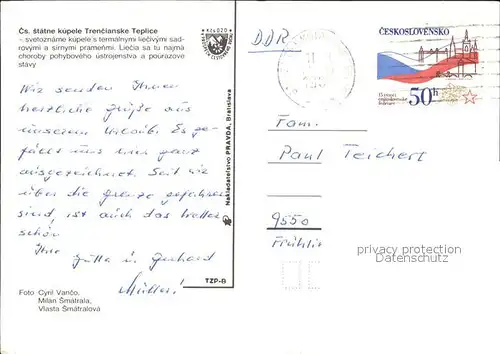 Čs. štátne kúpele Trenčianske Teplice
– svetoznáme kúpele s termálnymi liečivými sad-
rovými a sírnymi prameňmi. Liečia sa tu najmä
choroby pohybového ústrojenstva a poúrazové
stavy
Wir senden Ihnen
herzliche Grüße aus
unserem Urlaub. Es ge-
fällt uns hier ganz
ausgezeichnet. Seit wir
über die Grenze gefahren
sind, ist auch das Wetter
schön.
Ihre
Jutta u. Gerhard
Müller!
Foto Cyril Vančo,
Milan Šmátrala,
Vlasta Šmátralová
TZP-B
Nakladateľstvo PRAVDA, Bratislava
DDR
ČESKOSLOVENSKO
50h
Fam.
Paul Teichert
9550
privacy protection
watermark